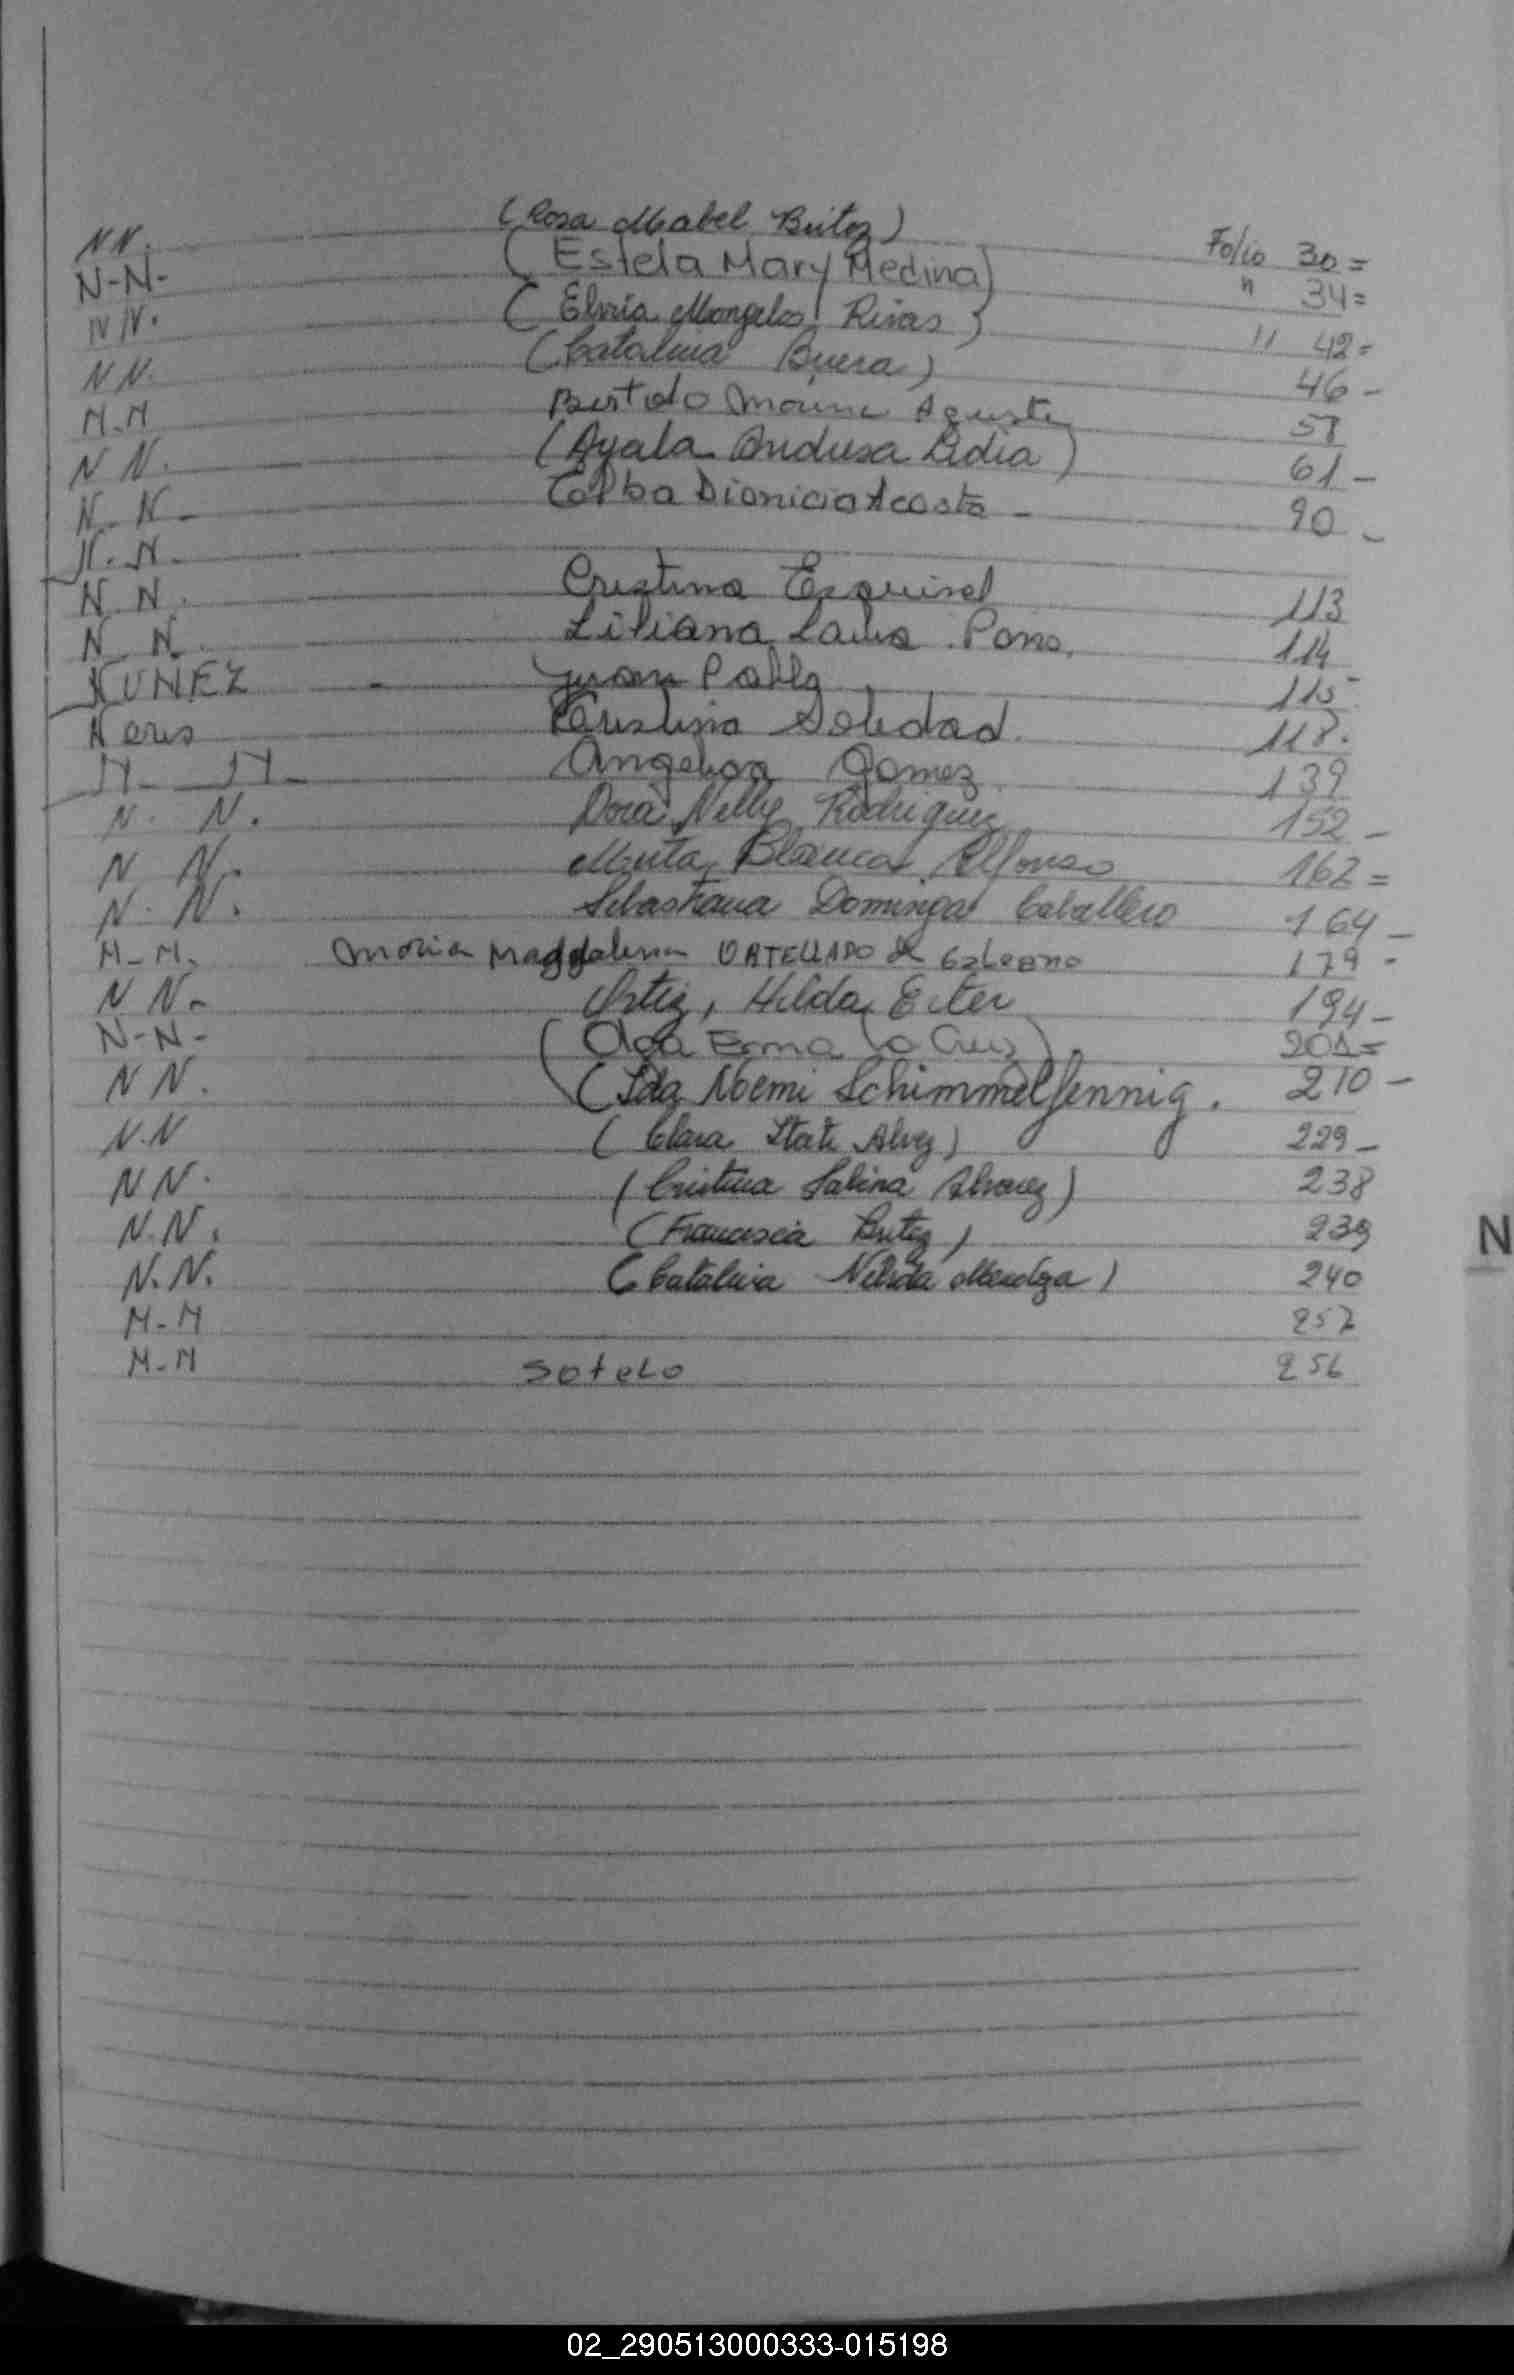 NN. (Rosa Mabel Britez) Folio 30=
N-N- (Estela Mary Medina) " 34=
NN. (Elvia Mongelos Rivas) " 42=
NN. (Catalina) 46-
N-N Agusti
NN. (Ayala Lidia) 61-
N-N- Dionicia Acosta - 90-
N.N.
N.N. Cristina Esquivel 113
N.N. Liliana 114
NUÑEZ - Juan Pablo 115
Neris Cristina Soledad. 118.
N- N- Angelica Gomez 139
N. N. Dora Nelly Rodriguez 152-
N N. Mirta Blanca Alfonso 162=
N. N. Sebastiana Dominga Caballero 164-
N-N. Maria Magdalena de Galeano 179-
NN- Ortiz, Hilda Ester 194-
N-N- (Olga Erma 201=
NN. (Ida Noemi Schimmelfennig. 210-
N.N (Clara Alvez) 229-
NN. (Cristina Sabina Alvarez) 238
N.N. (Francisca Britez) 239
N.N. (Catalina Nelida Mendoza) 240
N-N 257
N-N Sotelo 256
N
02_290513000333-015198